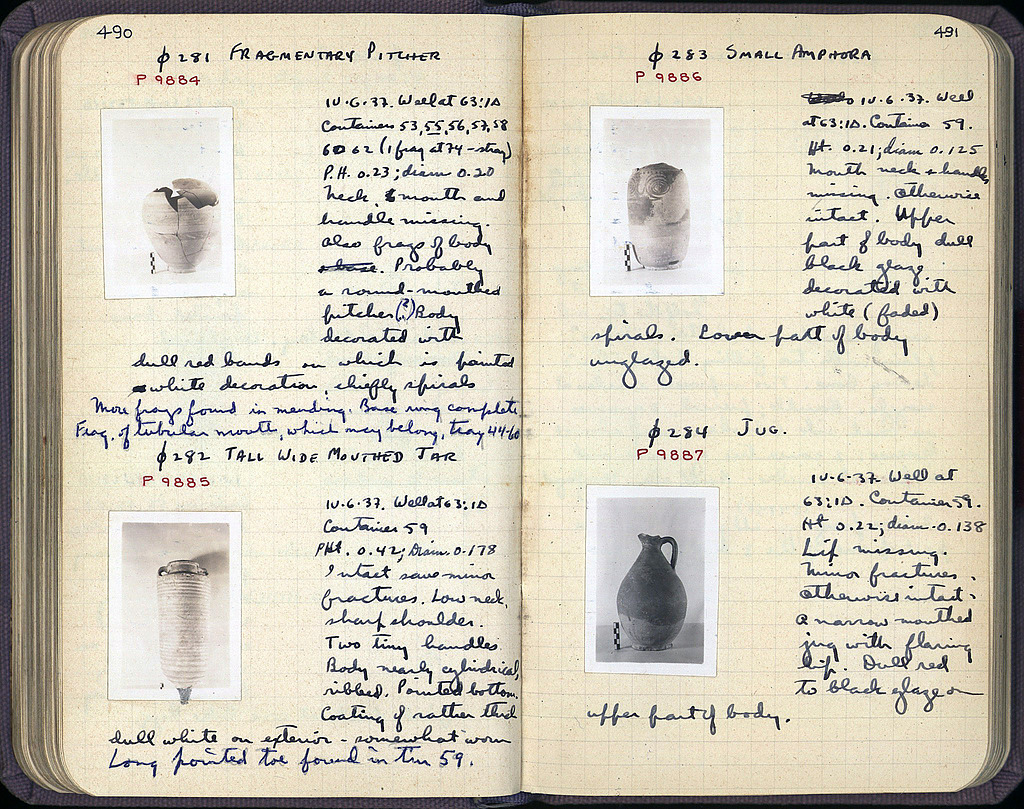 490
φ 281 FRAGMENTARY PITCHER
P 9884
10.6.37. Well at 63:1Δ
Containers 53,55,56,57,58
60 62 (1 frag at 74 - stray)
P.H. 0.23; diam 0.20
Neck, mouth and
handle missing.
Also frags of body
Probably
a round-mouthed
pitcher (?) Body
decorated with
dull red bands on which is painted
white decoration, chiefly spirals
More frags found in mending. Base ring complete.
Frag. of tubular mouth, which may belong, tray 44-60
φ 282 TALL WIDE MOUTHED JAR
P 9885
10.6.37. Well at 63:1Δ
Container 59
PHt. 0.42; Diam. 0.178
Intact save minor
fractures. Low neck,
sharp shoulder.
Two tiny handles.
Body nearly cylindrical,
ribbed. Pointed bottom.
Coating of rather thick
dull white on exterior - somewhat worn
Long pointed toe found in Tin 59.
491
φ 283 SMALL AMPHORA
P 9886
10.6.37. Well
at 63:1Δ. Container 59.
Ht. 0.21; diam 0.125
Mouth neck & handles
missing. Otherwise
intact. Upper
part of body dull
black glaze
decorated with
white (faded)
spirals. Lower part of body
unglazed.
φ 284 JUG.
P 9887
10.6.37. Well at
63:1Δ. Container 59.
Ht 0.22; diam. 0.138
Lip missing.
Minor fractures.
Otherwise intact.
A narrow mouthed
jug with flaring
lip. Dull red
to black glaze on
upper part of body.